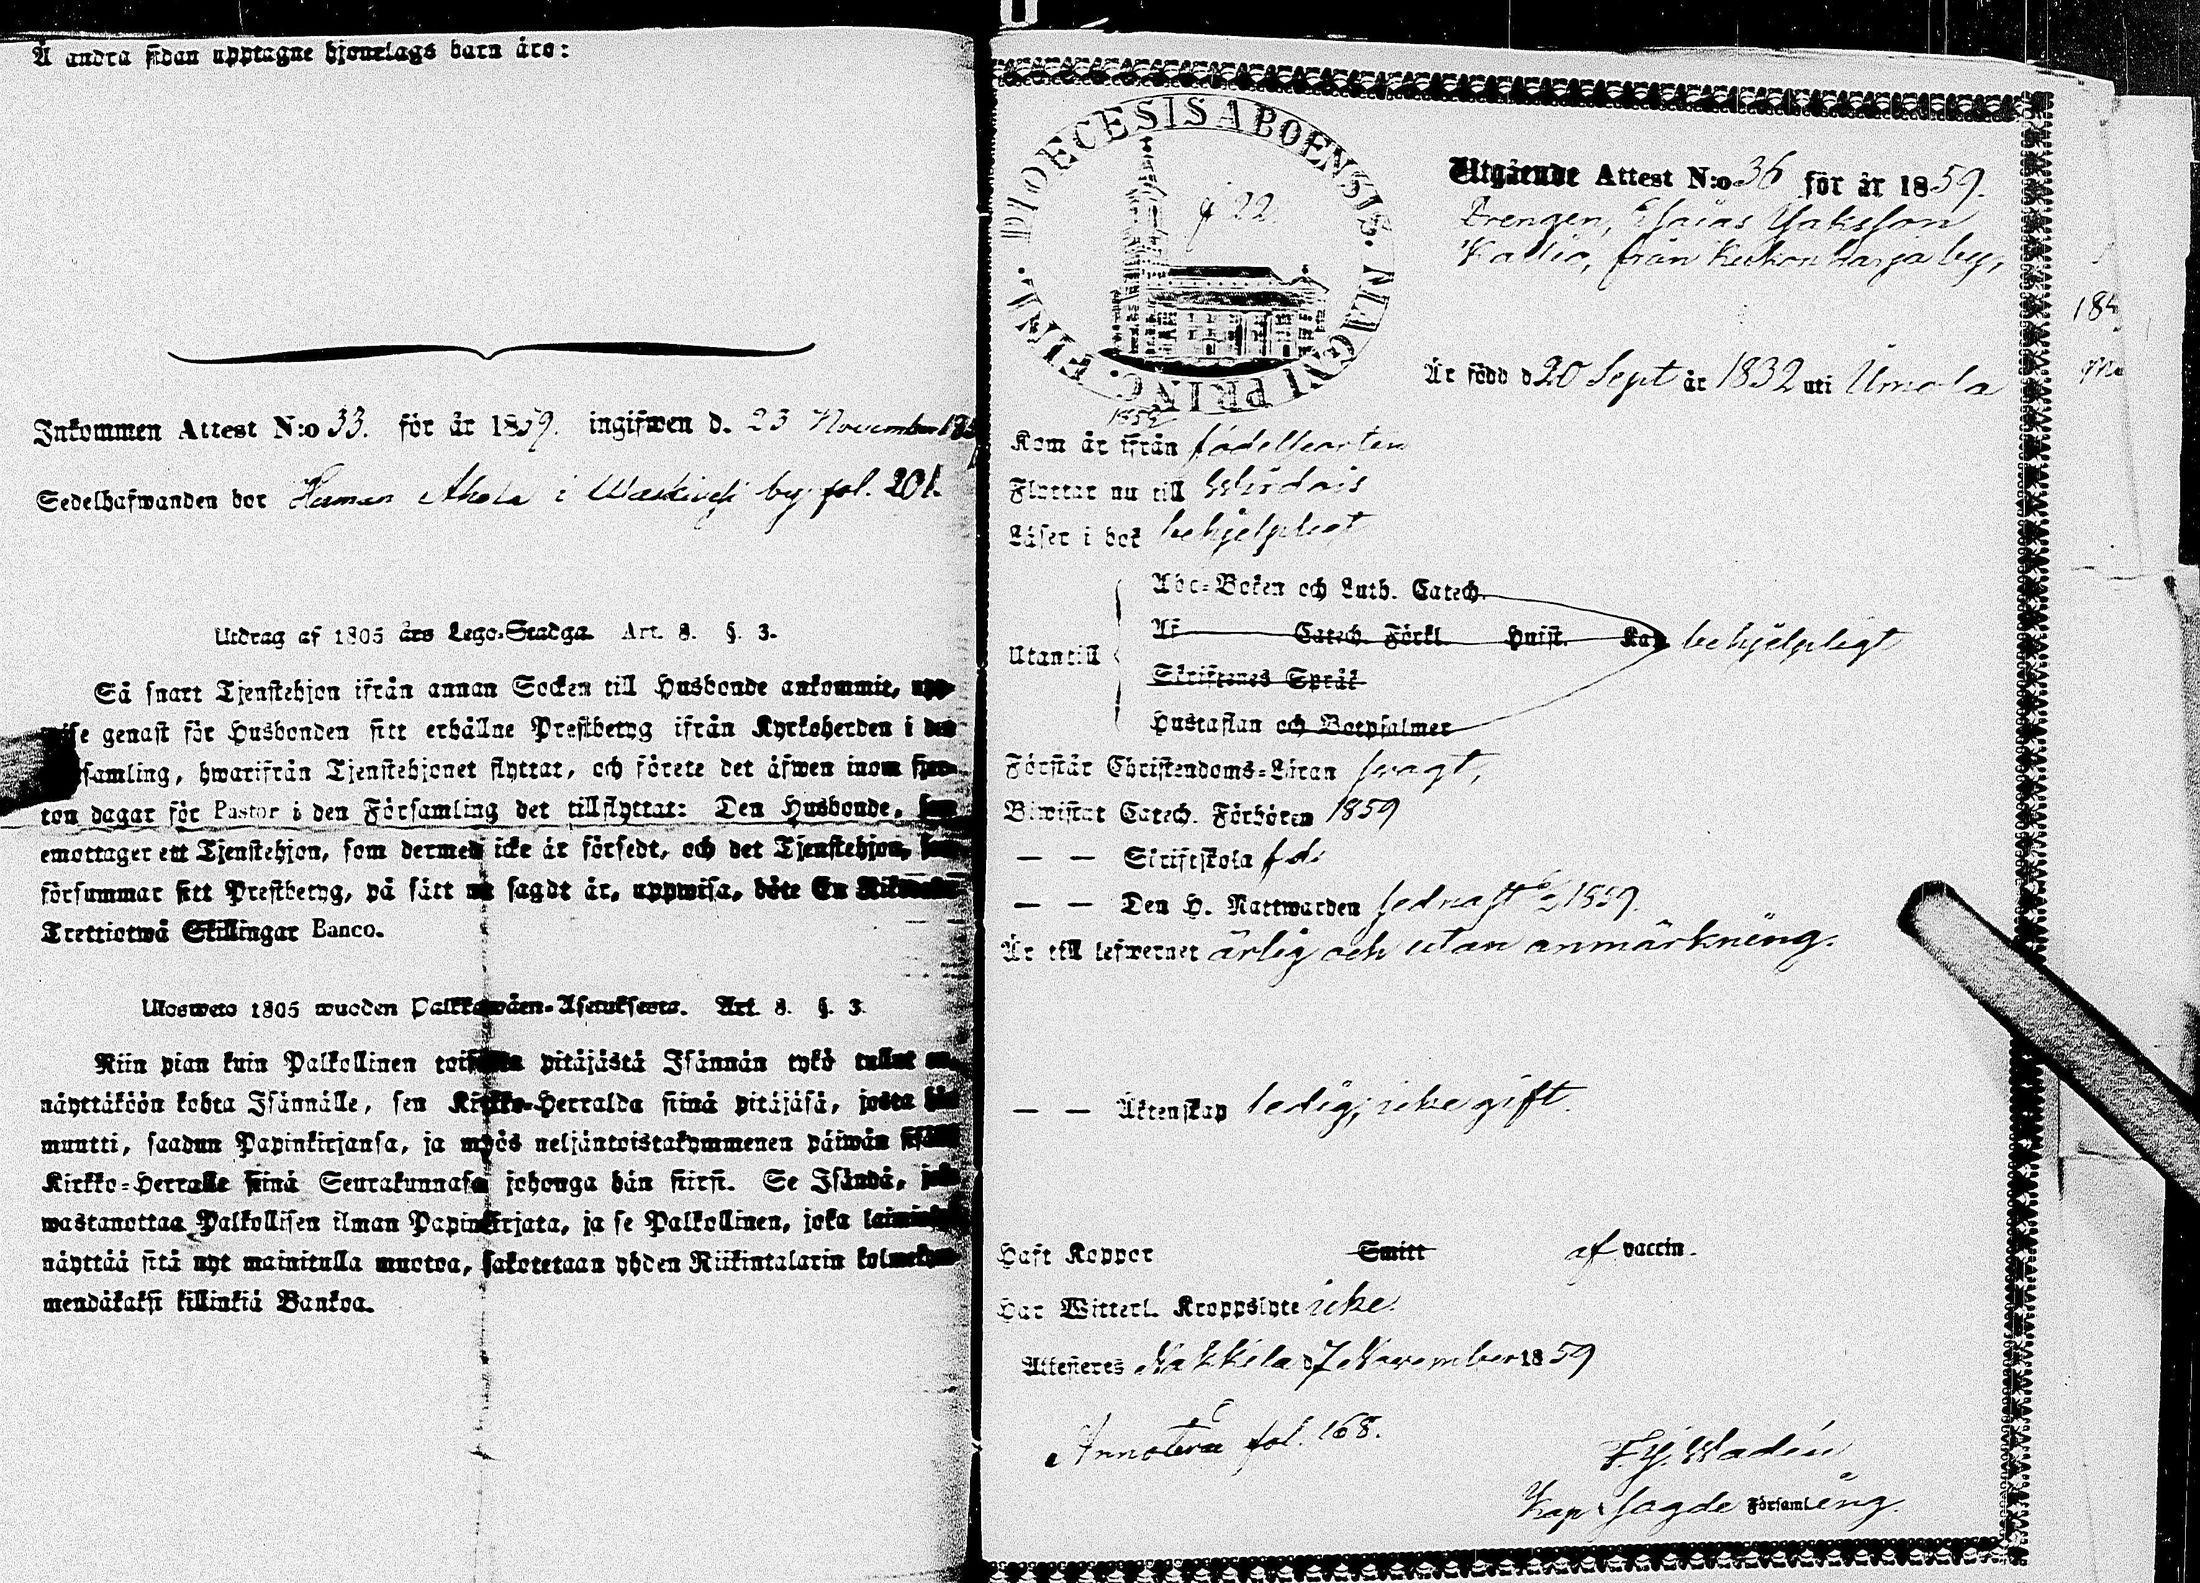 Å andra sidan upptagne hjonelags barn äro:
Inkommen Attest N:o 33. för år 1859. ingifwen d. 23 November 185
Sedelhafwanden bor Herman Ahola i Wäskivesi by fol. 201.
Utdrag af 1805 års Lego-Stadga Art. 8. §. 3.
Så snart Tjenstehjon ifrån annan Socken till Husbonde ankommit, upp-
wise genast för Husbonden sitt erhållne Prestbetyg ifrån Kyrkoherden i den
samling, hwarifrån Tjenstehjonet flyttat, och förete det äfwen inom fjor-
ton dagar för Pastor i den Församling det tillflyttat: Den Husbonde, som
emottager ett Tjenstehjon, som dermed icke är försedt, och det Tjenstehjon, som
försummar sitt Prestbetyg, på sätt nu sagdt är, uppwisa, böte En Riksdaler
Trettiotwå Skillingar Banco.
Ulosweto 1805 wuoden Palkkawäen-Asetuksesta. Art. 8. §. 3.
Niin pian kuin Palkollinen toisesta pitäjästä Isännän tykö tullut on,
näyttäköön kohta Isännälle, sen Kirkko-Herralda siinä pitäjäsä, josta hän
muutti, saadun Papinkirjansa, ja myös neljäntoistakymmenen päiwän sisällä
Kirkko-Herralle siinä Seurakunnasa johonga hän siirsi. Se Isändä, joka
wastanottaa Palkollisen ilman Papinkirjata, ja se Palkollinen, joka laiminlyö
näyttää sitä nyt mainitulla muotoa, sakotetaan yhden Riikintalarin kolmekym-
mendäkaksi killinkiä Bankoa.
DIOECESIS ABOENSIS. MAGNI PRINC. FINL.
g 22.
Utgående Attest N:o 36 för år 1859.
Drengen, Esaias Isaksson
Kallio, från Keikonkarja by,
Är född d 20 Sept år 1832 uti Urnola
1859
Kom år ifrån födelseorten
Flyttar nu till Wirdois
Läser i bok behjelpligt
Abc-Boken och Luth. Catech.
Utantill Af Catech. Förkl. Hvist. Kan behjelpligt
Skriftenes Språk
Hustaflan och Botpsalmer
Förstår Christendoms-Läran svagt,
Biwistat Catech. Förhören 1859
— — Skriftskola f d.
— — Den H. Nattwarden sednast 6/2 1859.
Är till lefwernet ärlig och utan anmärkning.
— — Äktenskap ledig, icke gift.
Haft Koppor Smitt af vaccin.
Har Witterl. Kroppslyte icke.
Attesteres Nakkila d 7 November 1859
Annoteras fol. 168.
F. G. Wadén
Kap i sagde Församling.